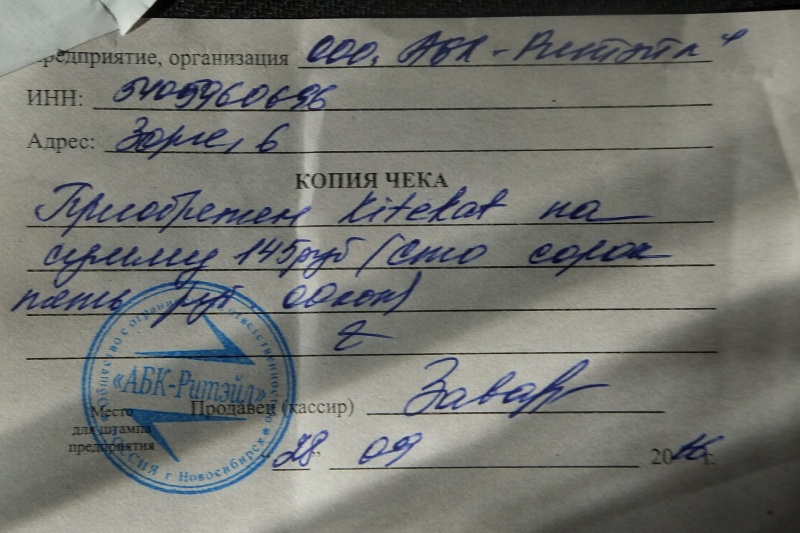 предприятие, организация ООО, АБК-Ритэйл"
ИНН: 5405960696
Адрес: Зорге, 6
КОПИЯ ЧЕКА
Приобретен Kitekat на
сумму 145руб (сто сорок
пять руб 00коп)
Общество с ограниченной ответственностью
«АБК-Ритэйл»
РОССИЯ г Новосибирск
Место
для штампа
предприятия
Продавец (кассир)
"28" 09 2016 г.